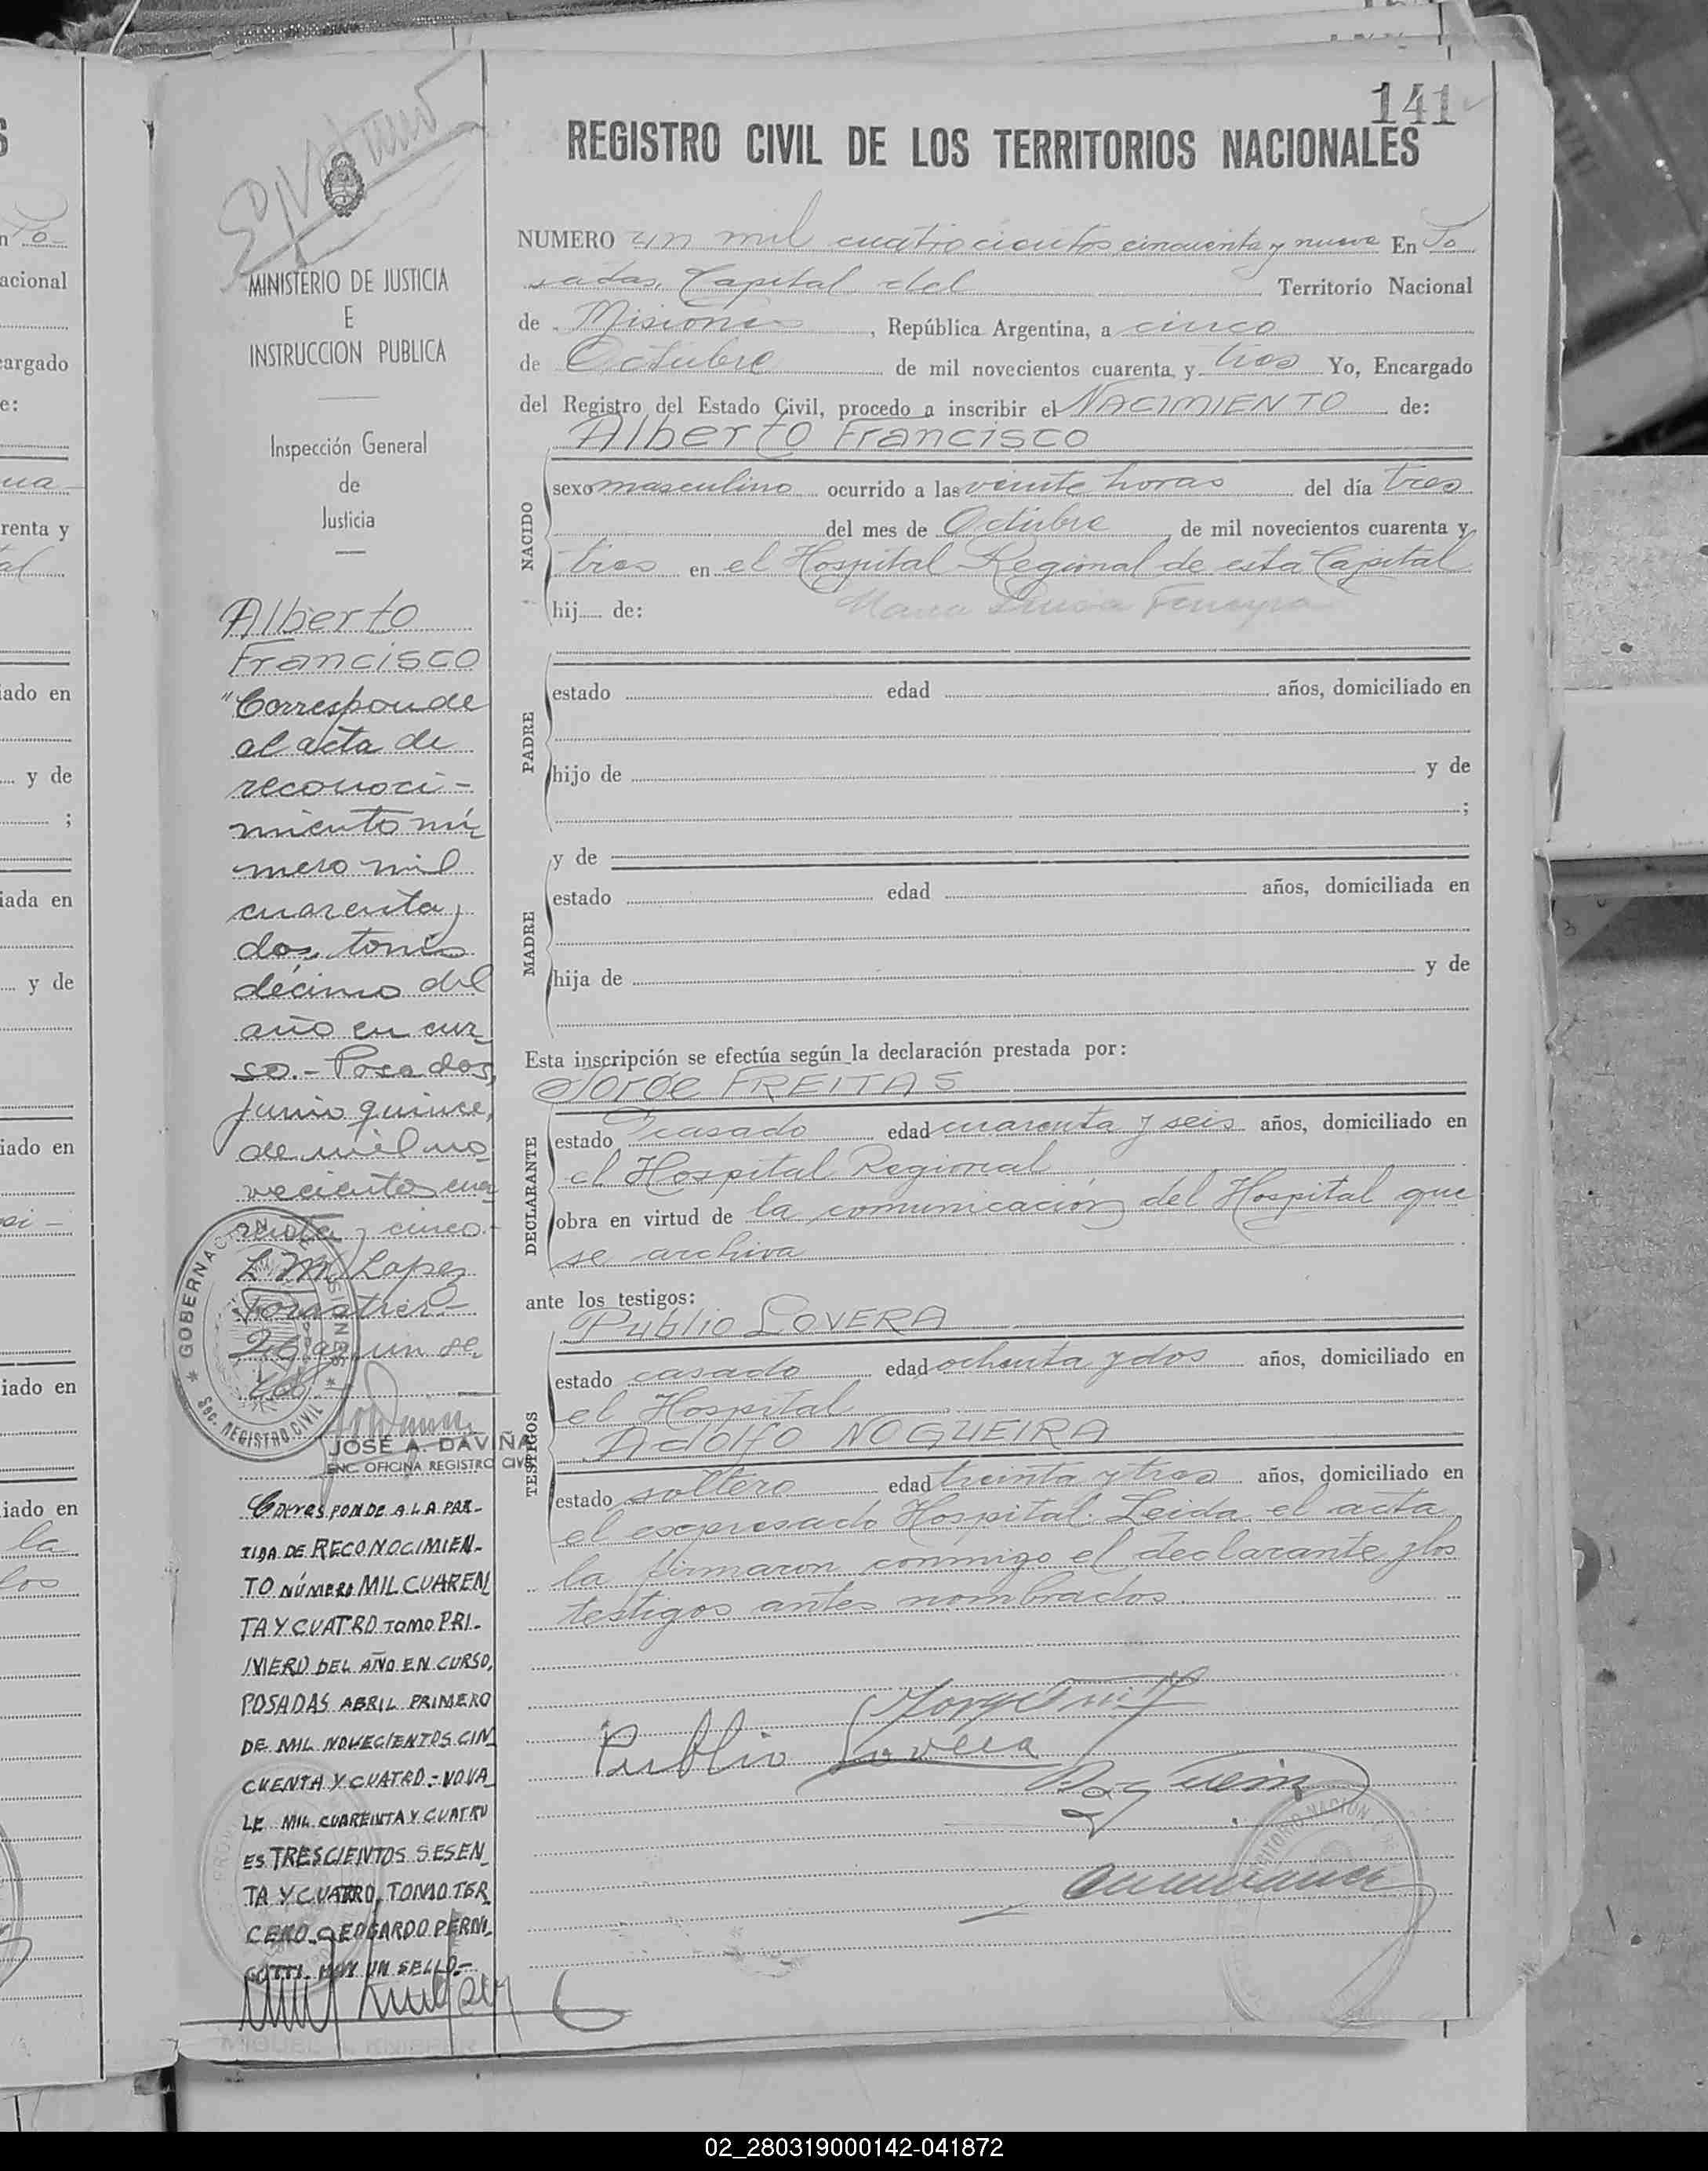 141
REGISTRO CIVIL DE LOS TERRITORIOS NACIONALES
MINISTERIO DE JUSTICIA
E
INSTRUCCION PUBLICA
Inspección General
de
Justicia
Alberto
Francisco
"Corresponde
al acta de
reconoci-
miento nú
mero mil
cuarenta y
dos, tomo
décimo del
año en cur
so.- Posadas,
junio quince,
de mil no
vecientos cua
renta y cinco.-
L. M. Lopez
Forastier.-
Hay un se
llo
GOBERNACION DE MISIONES
Sec. REGISTRO CIVIL
JOSE A. DAVIÑA
ENC. OFICINA REGISTRO CIVIL
CORRESPONDE A LA PAR-
TIDA DE RECONOCIMIEN-
TO NÚMERO MIL CUAREN
TA Y CUATRO TOMO PRI-
MERO DEL AÑO EN CURSO,
POSADAS ABRIL PRIMERO
DE MIL NOVECIENTOS CIN
CUENTA Y CUATRO.- NO VA
LE MIL CUARENTA Y CUATRO
ES TRESCIENTOS SESEN
TA Y CUATRO, TOMO TER
CERO. EDGARDO PERNI
GOTTI. HAY UN SELLO.-
NUMERO un mil cuatrocientos cincuenta y nueve En Po
sadas, Capital del Territorio Nacional
de Misiones, República Argentina, a cinco
de Octubre de mil novecientos cuarenta y tres Yo, Encargado
del Registro del Estado Civil, procedo a inscribir el NACIMIENTO de:
Alberto Francisco
NACIDO
sexo masculino ocurrido a las veinte horas del día tres
del mes de Octubre, de mil novecientos cuarenta y
tres en el Hospital Regional de esta Capital
hij de: Maria Luisa Ferreyra
PADRE
estado edad años, domiciliado en
hijo de y de
;
y de
MADRE
estado edad años, domiciliada en
hija de y de
Esta inscripción se efectúa según la declaración prestada por:
Jorge FREITAS
DECLARANTE
estado casado edad cuarenta y seis años, domiciliado en
el Hospital Regional
obra en virtud de la comunicación del Hospital que
se archiva
ante los testigos:
Publio LOVERA
TESTIGOS
estado casado edad ochenta y dos años, domiciliado en
el Hospital
Adolfo NOGUEIRA
estado soltero edad treinta y tres años, domiciliado en
el expresado Hospital. Leida el acta
la firmaron conmigo el declarante y los
testigos antes nombrados.
Publio Lovera
02_280319000142-041872